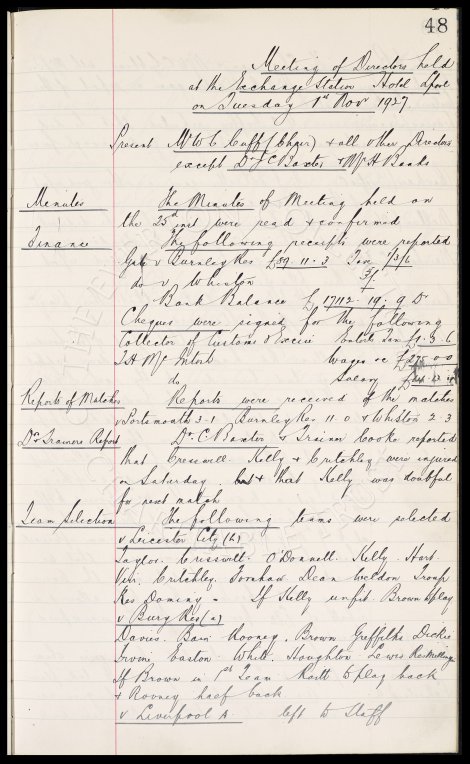 48
Meeting of Directors held
at the Exchange Station Hotel L'pool
on Tuesday 1st Nov 1927.
Present Mr W C Cuff (Chair) & all other Directors
except Dr J C Baxter & Mr H Banks
Minutes The Minutes of Meeting held on
the 25th inst were read & confirmed
Finance The following receipts were reported
Gate v Burnley Res £59 . 11 . 3 Tax 7/3/1
do v Whiston 5/-
Bank Balance £17112 . 19 . 9 Dr
Cheques were signed for the following
Collector of Customs & Excise Entets Tax 3 . 6
T H McIntosh Wages &c £275 0 0
do Salary
Reports of Matches Reports were received of the matches
v Portsmouth 3-1 Burnley Res 11-0 & Whiston 2-3
Drs Trainers Report Dr C Baxter & Trainer Cooke reported
that Cresswell Kelly & Critchley were injured
on Saturday. & that Kelly was doubtful
for next match
Team Selection The following teams were selected
v Leicester City (h)
Taylor. Cresswell. O'Donnell. Kelly. Hart.
Virr. Critchley. Forshaw Dean Weldon Troup
Res Dominy - If Kelly unfit Brown to play
v Bury Res (a)
Davies. Bain Rooney. Brown Griffiths Dickie
Irvine Easton White. Houghton Lewis Res
If Brown in 1st Team to play back
& Rooney half back
v Liverpool A left to Staff